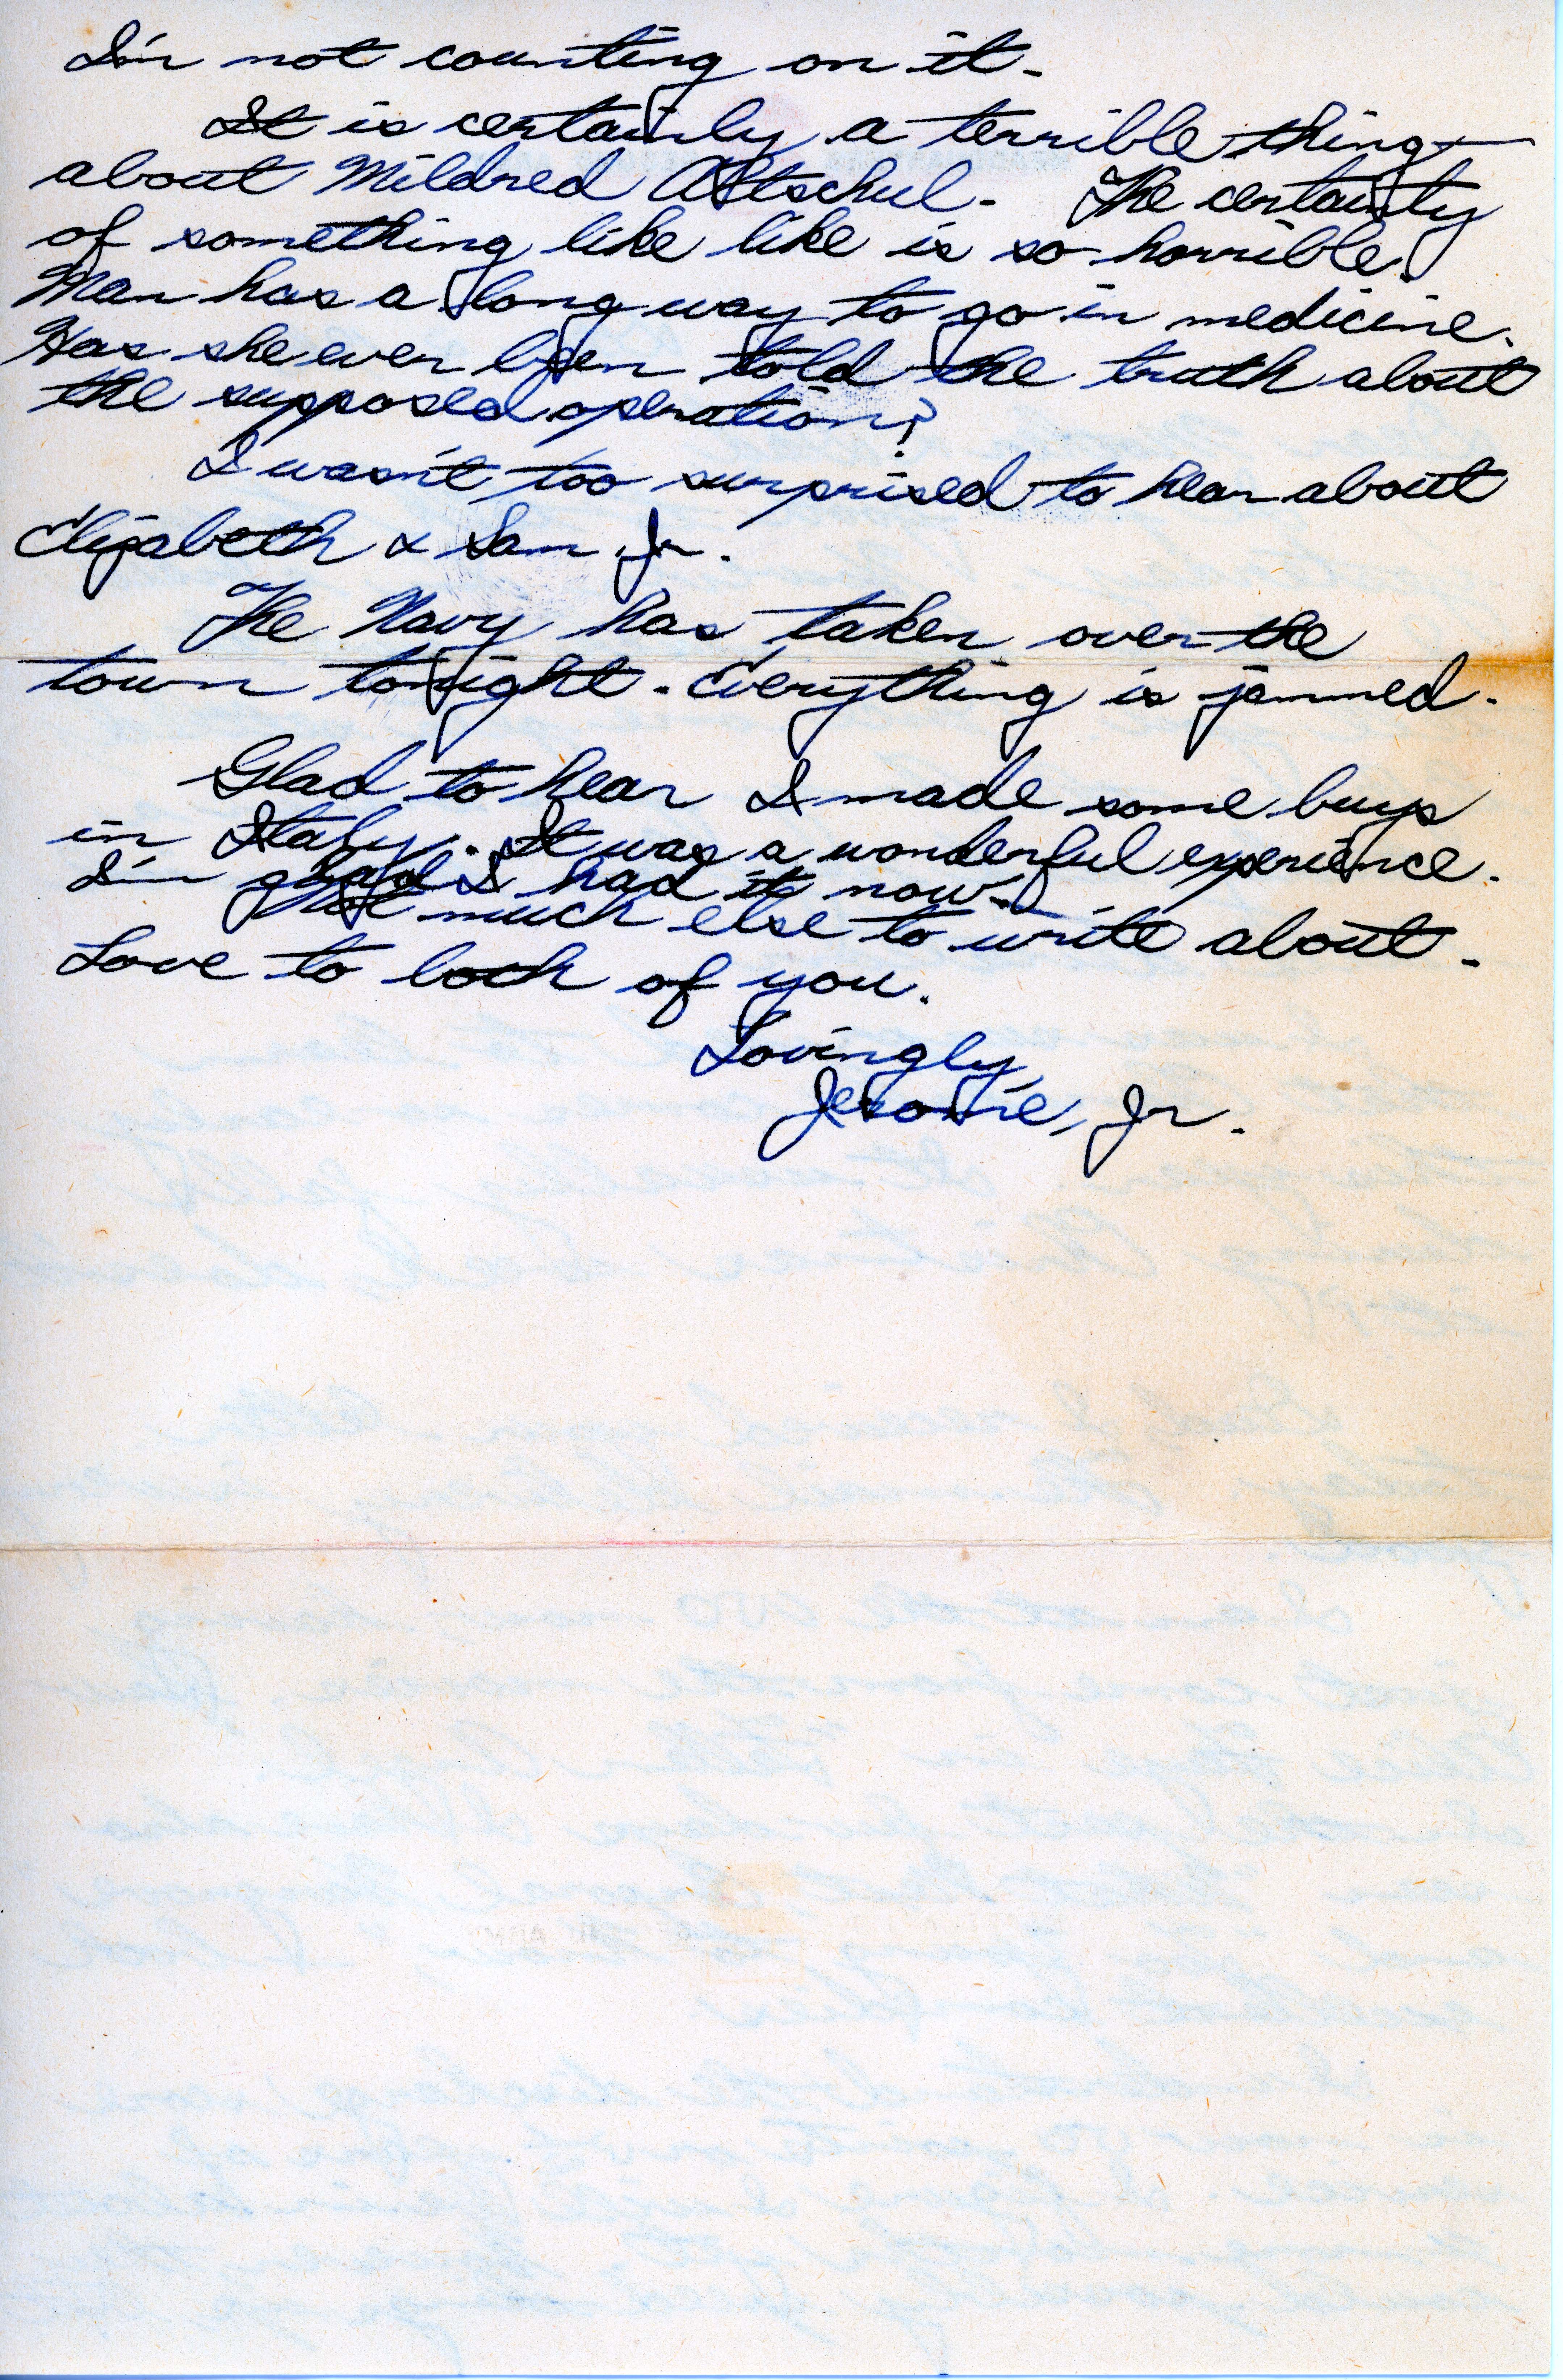 I'm not counting on it.
It is certainly a terrible thing
about Mildred Altschul. The certainty
of something like like is so horrible.
Man has a long way to go in medicine.
Has she ever been told the truth about
the supposed operation?
I wasn't too surprised to hear about
Elizabeth & Sam Jr.
The Navy has taken over the
town tonight. Everything is jammed.
Glad to hear I made some buys
in Italy. It was a wonderful experience.
I'm glad I had it now.
Not much else to write about.
Love to both of you.
Lovingly,
Jerome, Jr.